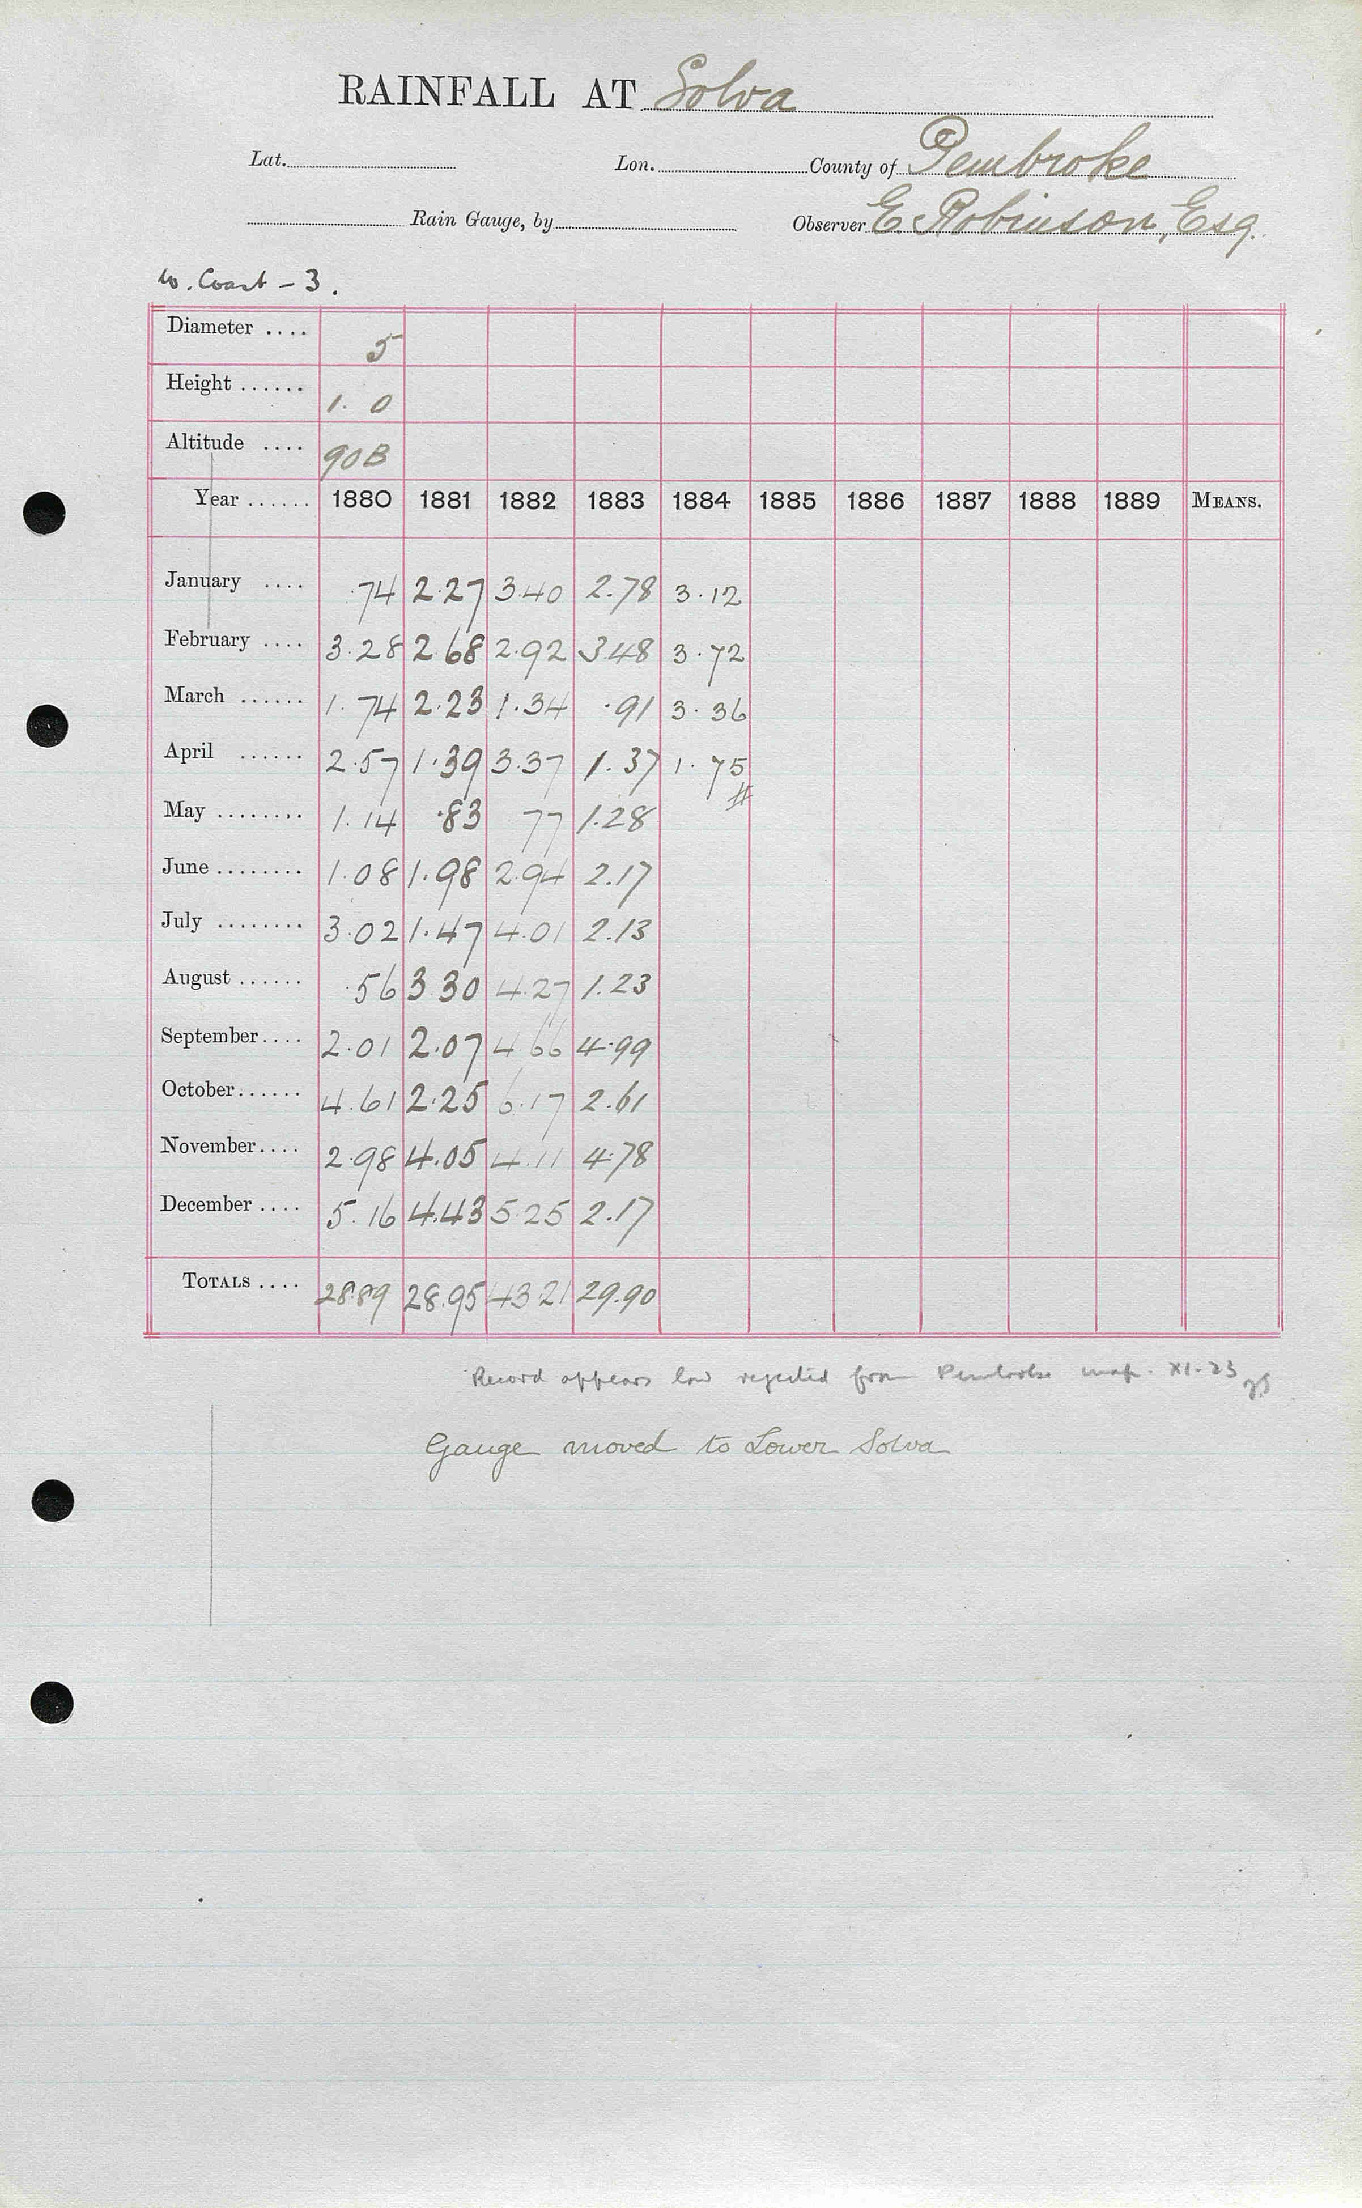 RAINFALL AT Solva
Lat. Lon. County of Pembroke
Rain Gauge, by Observer E. Robinson, Esq.
W. Coast - 3.
Diameter .... 5
Height ...... 1. 0
Altitude .... 90B
Year ...... 1880 1881 1882 1883 1884 1885 1886 1887 1888 1889 MEANS.
January .... .74 2.27 3.40 2.78 3.12
February .... 3.28 2.68 2.92 3.48 3.72
March ...... 1.74 2.23 1.34 .91 3.36
April ...... 2.57 1.39 3.37 1.37 1.75
#
May ........ 1.14 .83 77 1.28
June ........ 1.08 1.98 2.94 2.17
July ........ 3.02 1.47 4.01 2.13
August ...... .56 3 30 4.27 1.23
September .... 2.01 2.07 4 66 4.99
October ...... 4.61 2.25 6.17 2.61
November .... 2.98 4.05 4.11 4.78
December .... 5.16 4.43 5.25 2.17
TOTALS .... 28.89 28.95 43 21 29.90
Record appears low rejected from Pembroke map. XI.23
Gauge moved to Lower Solva